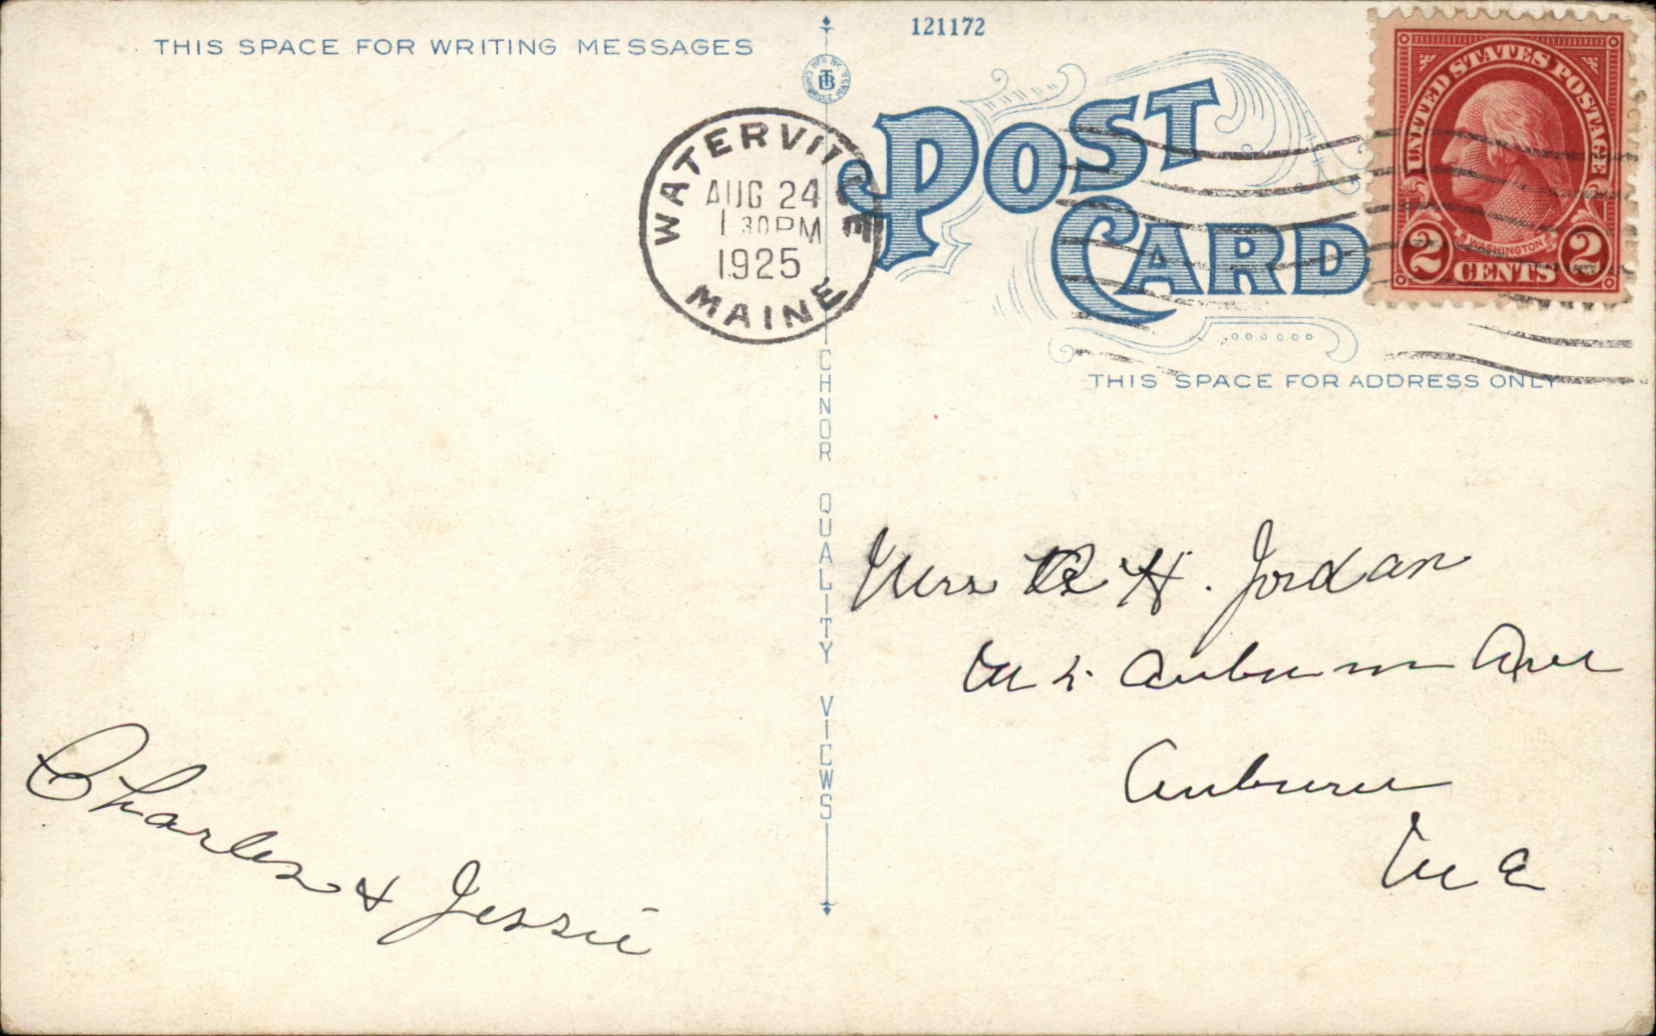 THIS SPACE FOR WRITING MESSAGES
121172
POST CARD
UNITED STATES POSTAGE
WASHINGTON
2 CENTS 2
WATERVILLE
AUG 24
1 30PM
1925
MAINE
THIS SPACE FOR ADDRESS ONLY
CHNOR QUALITY VIEWS
Mrs H. Jordan
Auburn Ave
Auburn
Me
Charles & Jessie